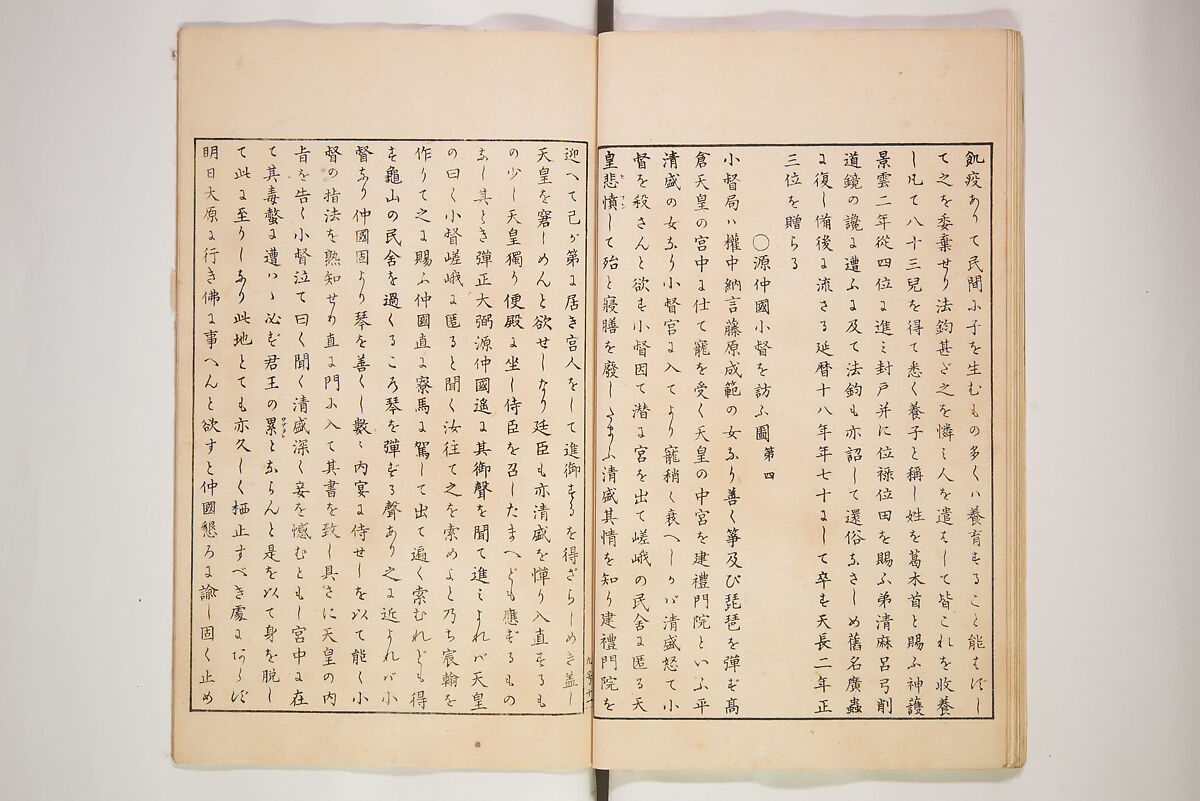 飢疫ありて民間ふ子を生むもの多くハ養育すること能はずし
て之を委棄せり法鈞甚ざ之を憐ミ人を遣はして皆これを收養
し凡て八十三兒を得て悉く養子と稱し姓を葛木首と賜ふ神護
景雲二年從四位に進ミ封戸并に位祿位田を賜ふ弟清麻呂弓削
道鏡の讒に遭ふに及て法鈞も亦詔して還俗なさしめ舊名廣蟲
に復し備後に流さる延暦十八年年七十にして卒す天長二年正
三位を贈らる
〇源仲國小督を訪ふ圖 第四
小督局ハ權中納言藤原成範の女なり善く箏及び琵琶を彈ず髙
倉天皇の宮中に仕て寵を受く天皇の中宮を建禮門院といふ平
清盛の女なり小督宮に入てより寵稍く衰へしガバ清盛怒て小
督を殺さんと欲す小督因て潜に宮を出て嵯峨の民舎に匿る天
皇悲憤して殆と寢膳を廢したまふ清盛其情を知り建禮門院を
迎へて己ガ第に居き宮人をして進御するを得ざらしめき蓋し
天皇を窘しめんと欲せしなり廷臣も亦清盛を憚り入直するも
の少し天皇獨り便殿に坐し侍臣を召したまへども應ずるもの
なし其とき彈正大弼源仲國遙に其御聲を聞て進ミよれバ天皇
の曰く小督嵯峨に匿ると聞く汝往て之を索めよと乃ち宸翰を
作りて之に賜ふ仲國直に寮馬に駕して出て遍く索むれども得
ず龜山の民舎を過くるころ琴を彈ずる聲あり之に近よれバ小
督なり仲國固より琴を善くし數〻内宴に侍せしを以て能く小
督の指法を熟知せり直に門ふ入て其書を致し具さに天皇の内
旨を告く小督泣て曰く聞く清盛深く妾を憾むともし宮中に在
て其毒螫に遭ハゝ必ず君王の累とならんと是を以て身を脱し
て此に至りしなり此地とても亦久しく栖止すべき處にあらず
明日大原に行き佛に事へんと欲すと仲國懇ろに諭し固く止め